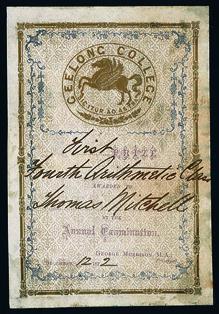 GEELONG COLLEGE
First
PRIZE
Fourth Arithmetic Class
AWARDED TO
Thomas Mitchell
AT THE
Annual Examination,
GEORGE MORRISON, M.A.
DECEMBER 12